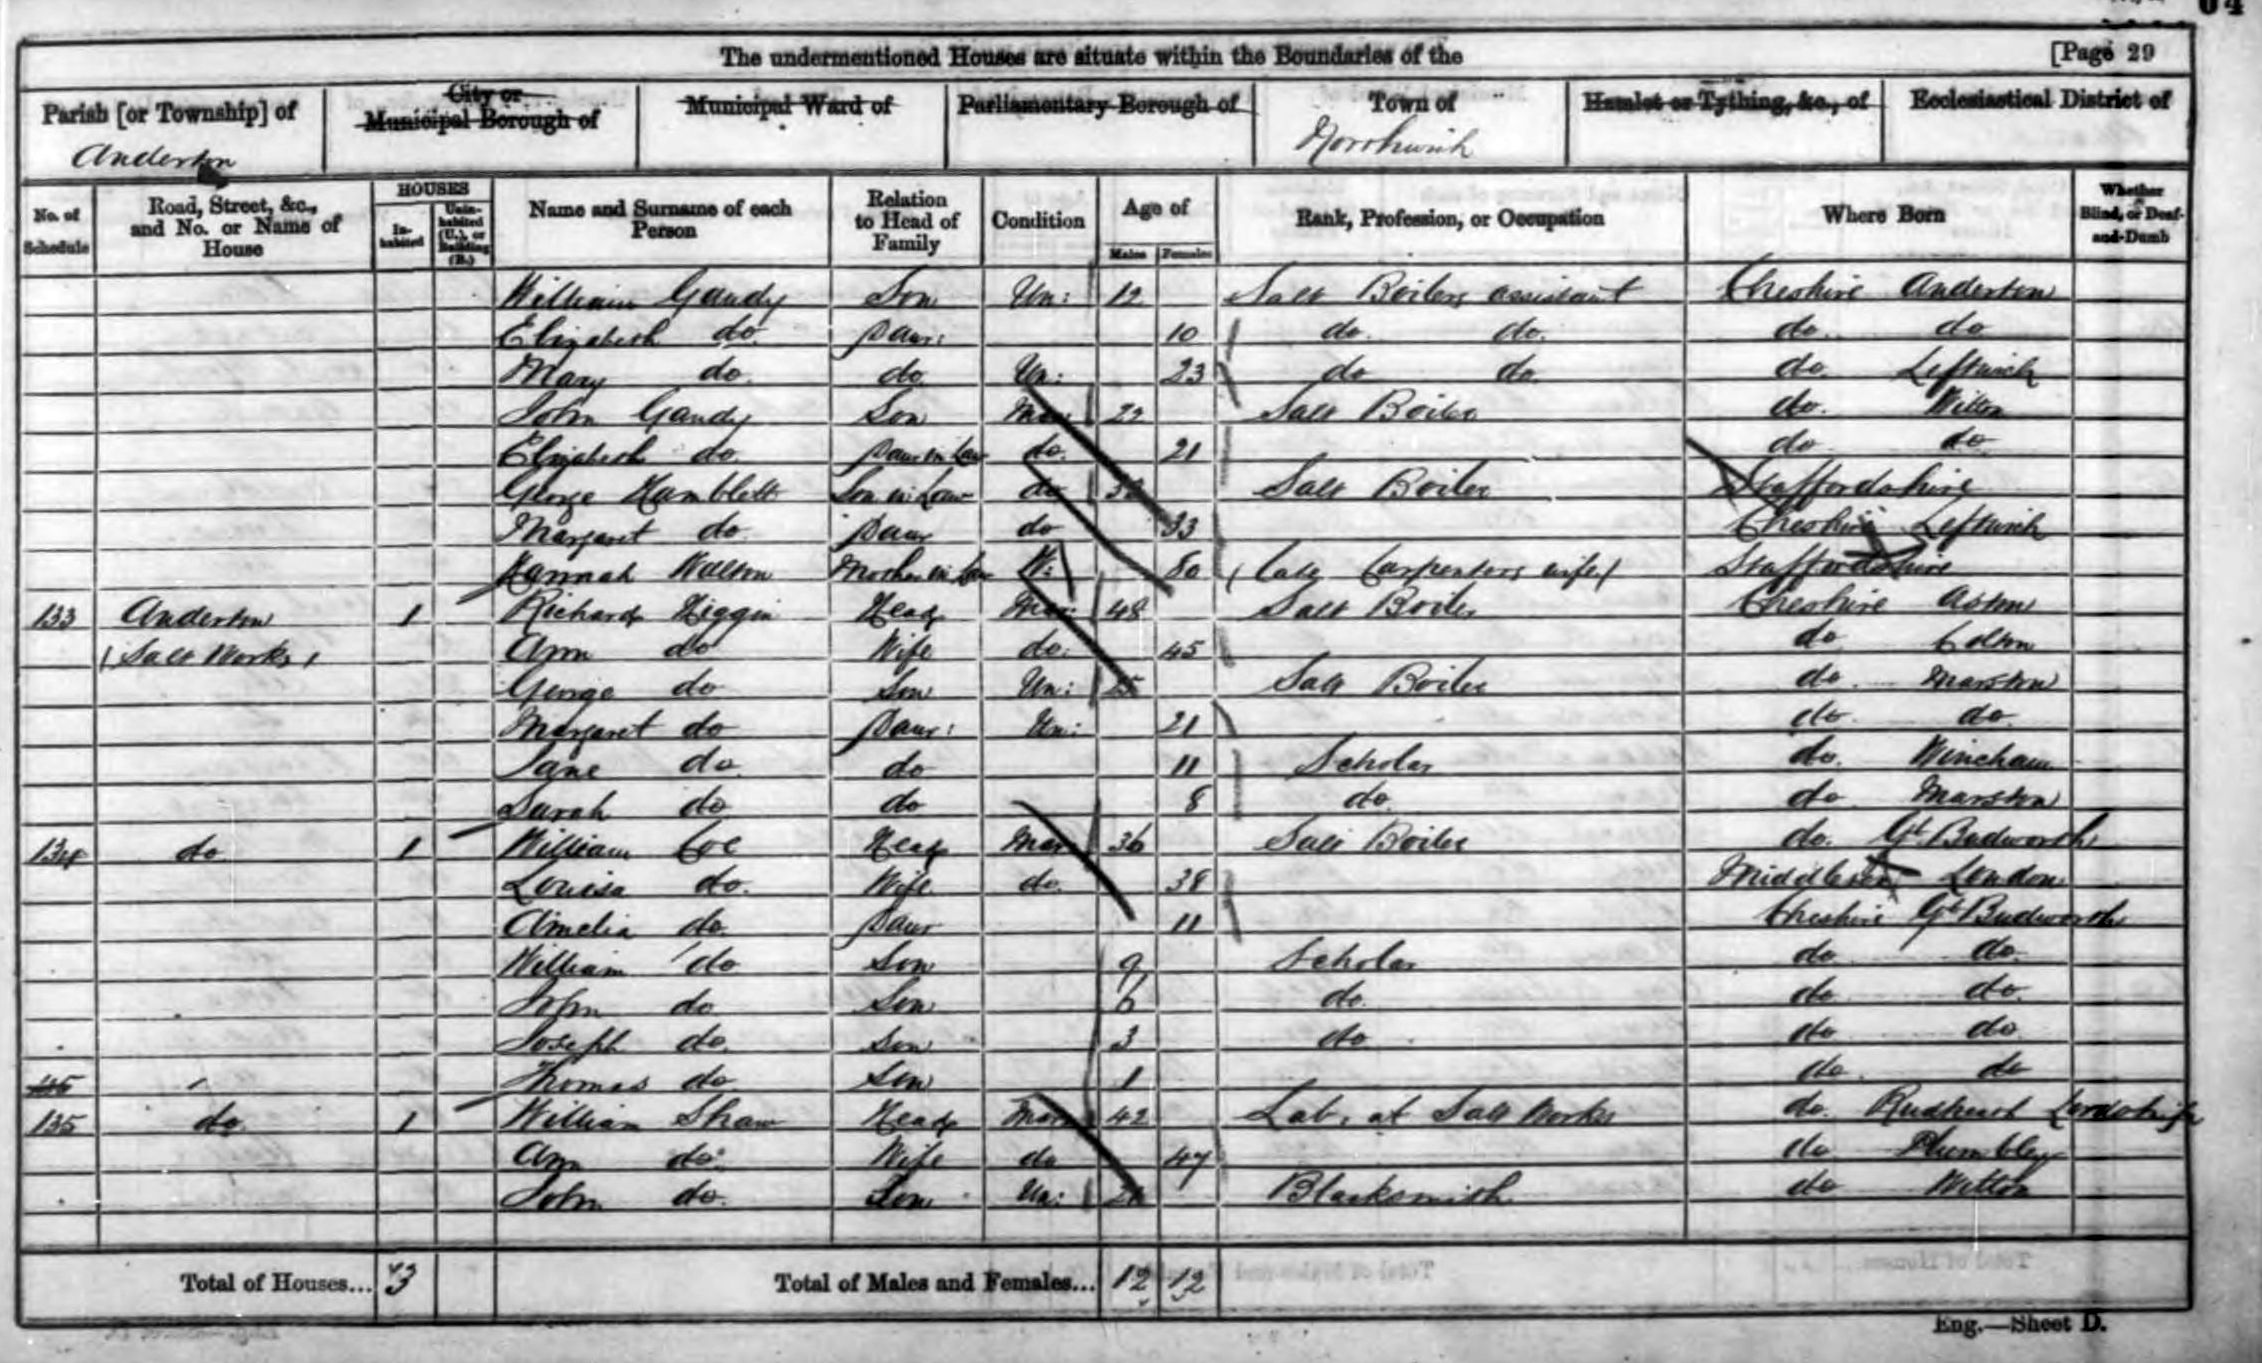 64
The undermentioned Houses are situate within the Boundaries of the [Page 29
Parish [or Township] of City or Municipal Borough of Municipal Ward of Parliamentary Borough of Town of Hamlet or Tything, &c., of Ecclesiastical District of
Anderton Northwich
No. of Schedule Road, Street, &c., and No. or Name of House HOUSES In-habited Unin-habited (U.), or Building (B.) Name and Surname of each Person Relation to Head of Family Condition Age of Males Females Rank, Profession, or Occupation Where Born Whether Blind, or Deaf-and-Dumb
William Gandy Son Un: 12 Salt Boilers assistant Cheshire Anderton
Elizabeth do. Daur: 10 do. do. do. do
Mary do. do Un: 23 do do do. Leftwich
John Gandy Son Mar: 22 Salt Boiler do. Witton
Elizabeth do. Daur in Law do. 21 do do
George Hamblett Son in Law do Salt Boiler Staffordshire
Margaret do. Daur do 33 Cheshire Leftwich
Hannah Walton Mother in Law W: 80 (late Carpenters wife) Staffordshire
133 Anderton 1 Richard Higgin Head Mar: 48 Salt Boiler Cheshire Aston
(Salt Works) Ann do Wife do: 45 do
George do Son Un: 25 Salt Boiler do. Marston
Margaret do Daur: Un: 21 do. do.
Jane do. do 11 Scholar do. Wincham
Sarah do. do 8 do. do Marston
134 do 1 William Coe Head Mar 36 Salt Boiler do. Gt. Budworth
Louisa do. Wife do. 38 Middlesex London
Amelia do. Daur 11 Cheshire Gt Budworth
William do Son 9 Scholar do do.
John do Son 6 do. do do.
Joseph do. Son 3 do. do do
Thomas do. Son 1 do. do
135 do. 1 William Shaw Head Mar 42 Lab. at Salt Works do. Rudheath Lordship
Ann do. Wife do 47 do Plumbley
John do. Son Un: Blacksmith do Witton
Total of Houses... 3 Total of Males and Females... 12 12
Eng.—Sheet D.